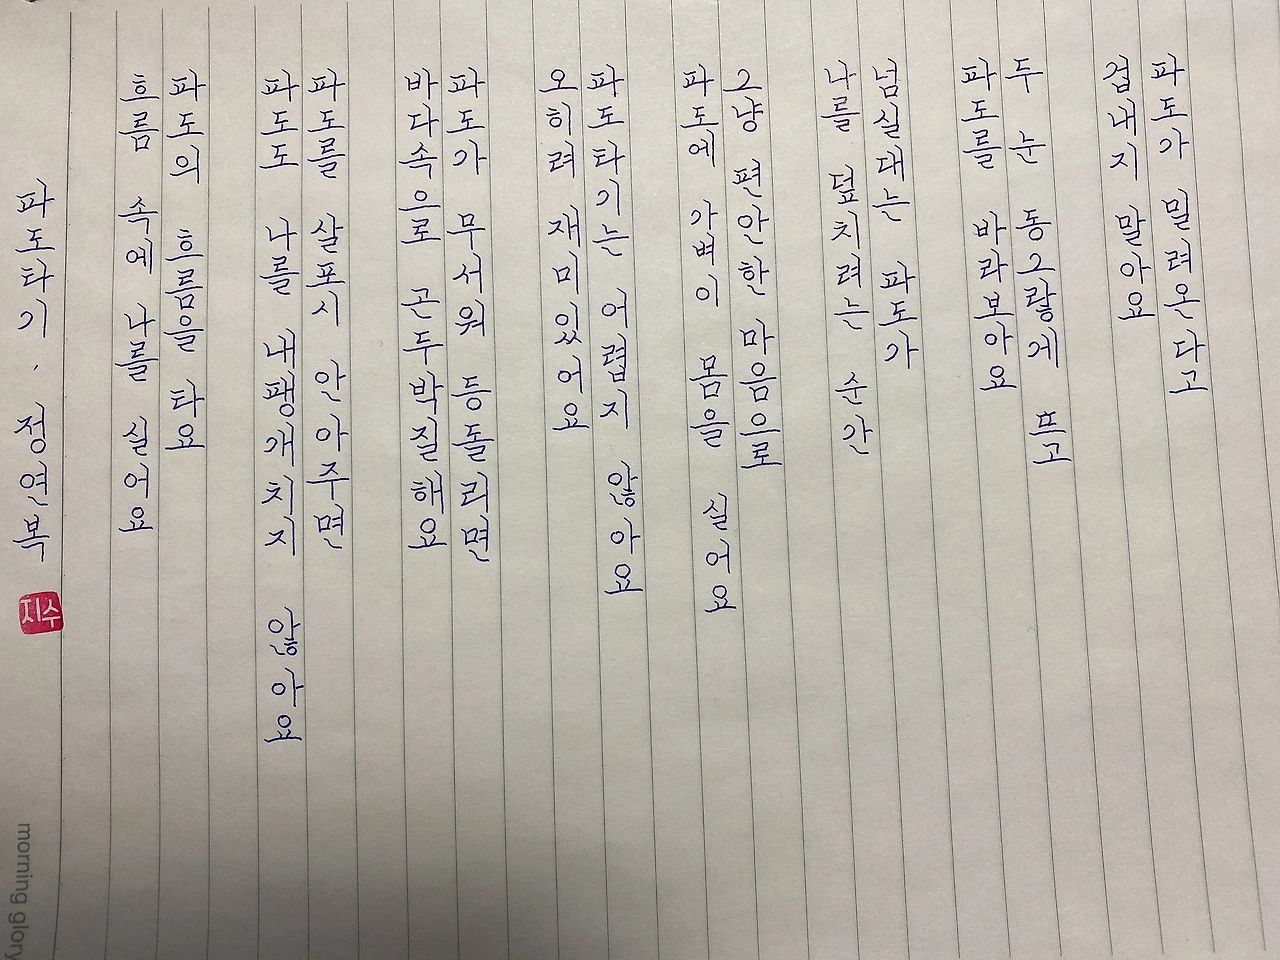 파도가 밀려온다고
겁내지 말아요
두 눈 동그랗게 뜨고
파도를 바라보아요
넘실대는 파도가
나를 덮치려는 순간
그냥 편안한 마음으로
파도에 가벼이 몸을 실어요
파도타기는 어렵지 않아요
오히려 재미있어요
파도가 무서워 등돌리면
바다속으로 곤두박질해요
파도를 살포시 안아주면
파도도 나를 내팽개치지 않아요
파도의 흐름을 타요
흐름 속에 나를 실어요
파도타기, 정연복
지수
morning glory